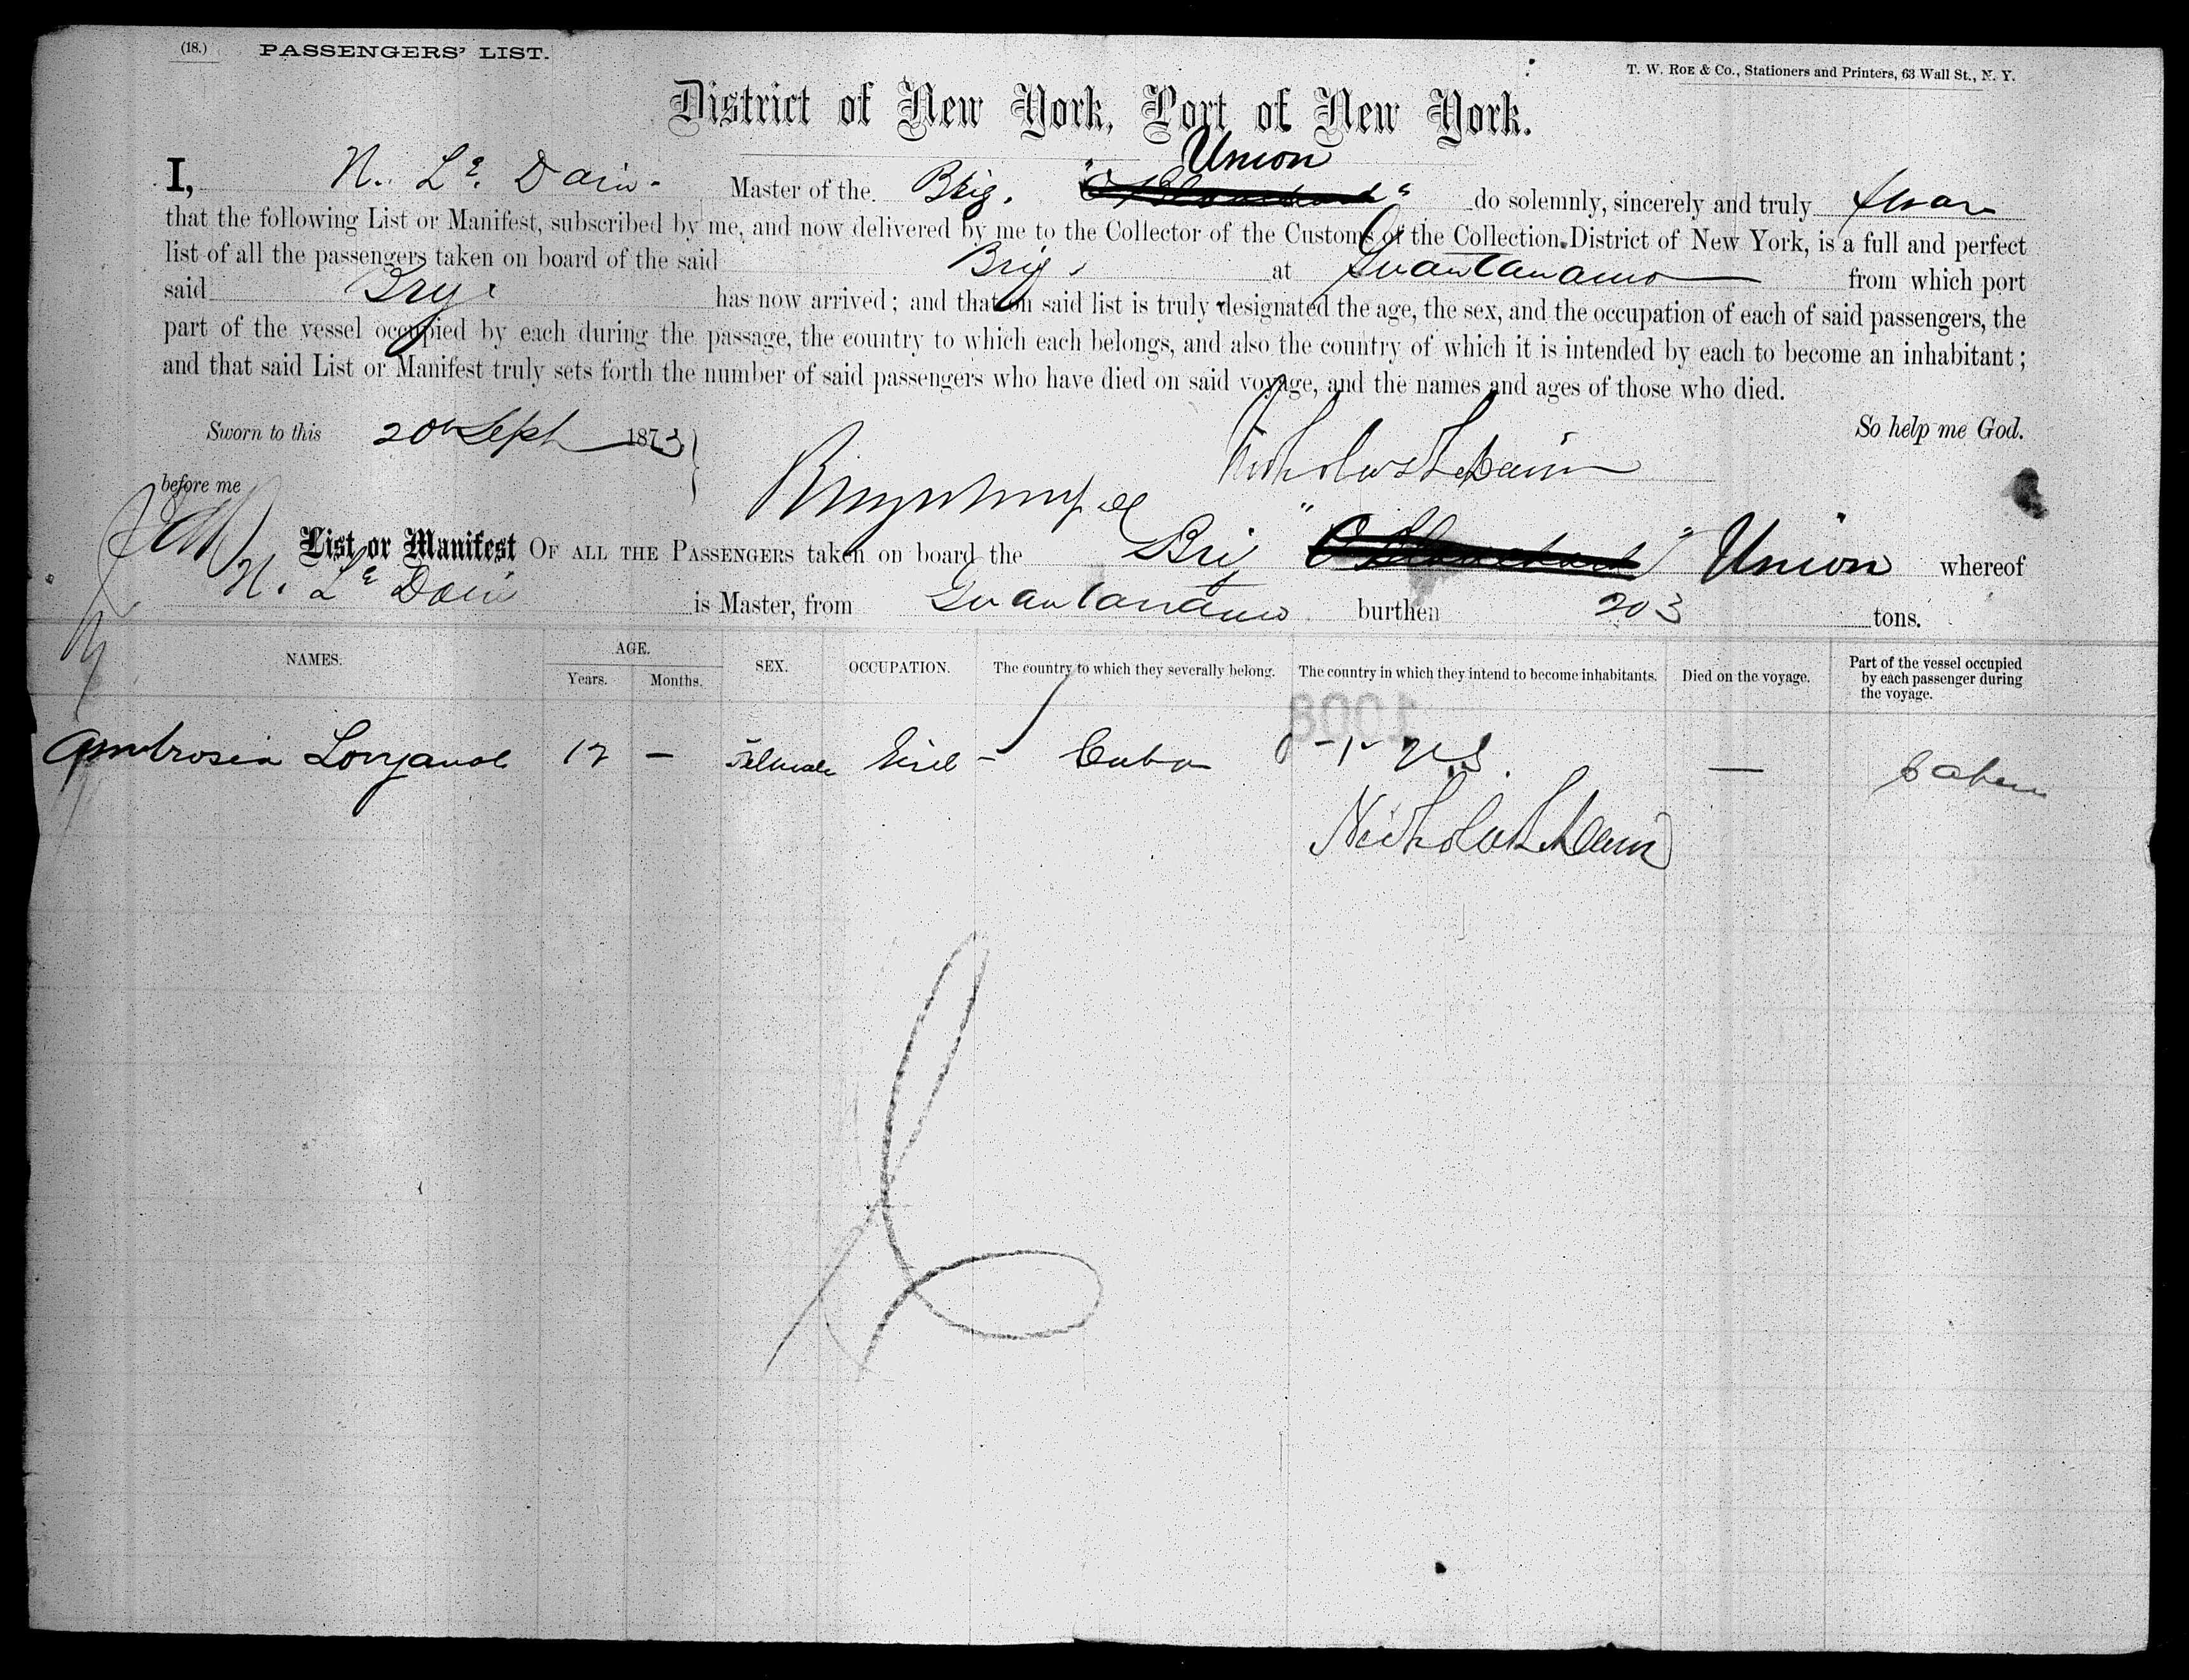 (18.) PASSENGERS' LIST.
T. W. ROE & CO., Stationers and Printers, 63 Wall St., N. Y.
District of New York, Port of New York.
Union
I, N. Le Dain Master of the Brig. " " do solemnly, sincerely and truly swear
that the following List or Manifest, subscribed by me, and now delivered by me to the Collector of the Customs of the Collection District of New York, is a full and perfect
list of all the passengers taken on board of the said Brig at Guantanamo from which port
said Brig has now arrived; and that on said list is truly designated the age, the sex, and the occupation of each of said passengers, the
part of the vessel occupied by each during the passage, the country to which each belongs, and also the country of which it is intended by each to become an inhabitant;
and that said List or Manifest truly sets forth the number of said passengers who have died on said voyage, and the names and ages of those who died.
Sworn to this 20th Sept 1873 So help me God.
Nicholas Le Dain
before me
List or Manifest OF ALL THE PASSENGERS taken on board the Brig " " Union whereof
N. Le Dain is Master, from Guantanamo burthen 203 tons.
NAMES. AGE. Years. Months. SEX. OCCUPATION. The country to which they severally belong. The country in which they intend to become inhabitants. Died on the voyage. Part of the vessel occupied by each passenger during the voyage.
Ambrosia 12 — Female Girl - Cuba U.S. — Cabin
Nicholas Le Dain